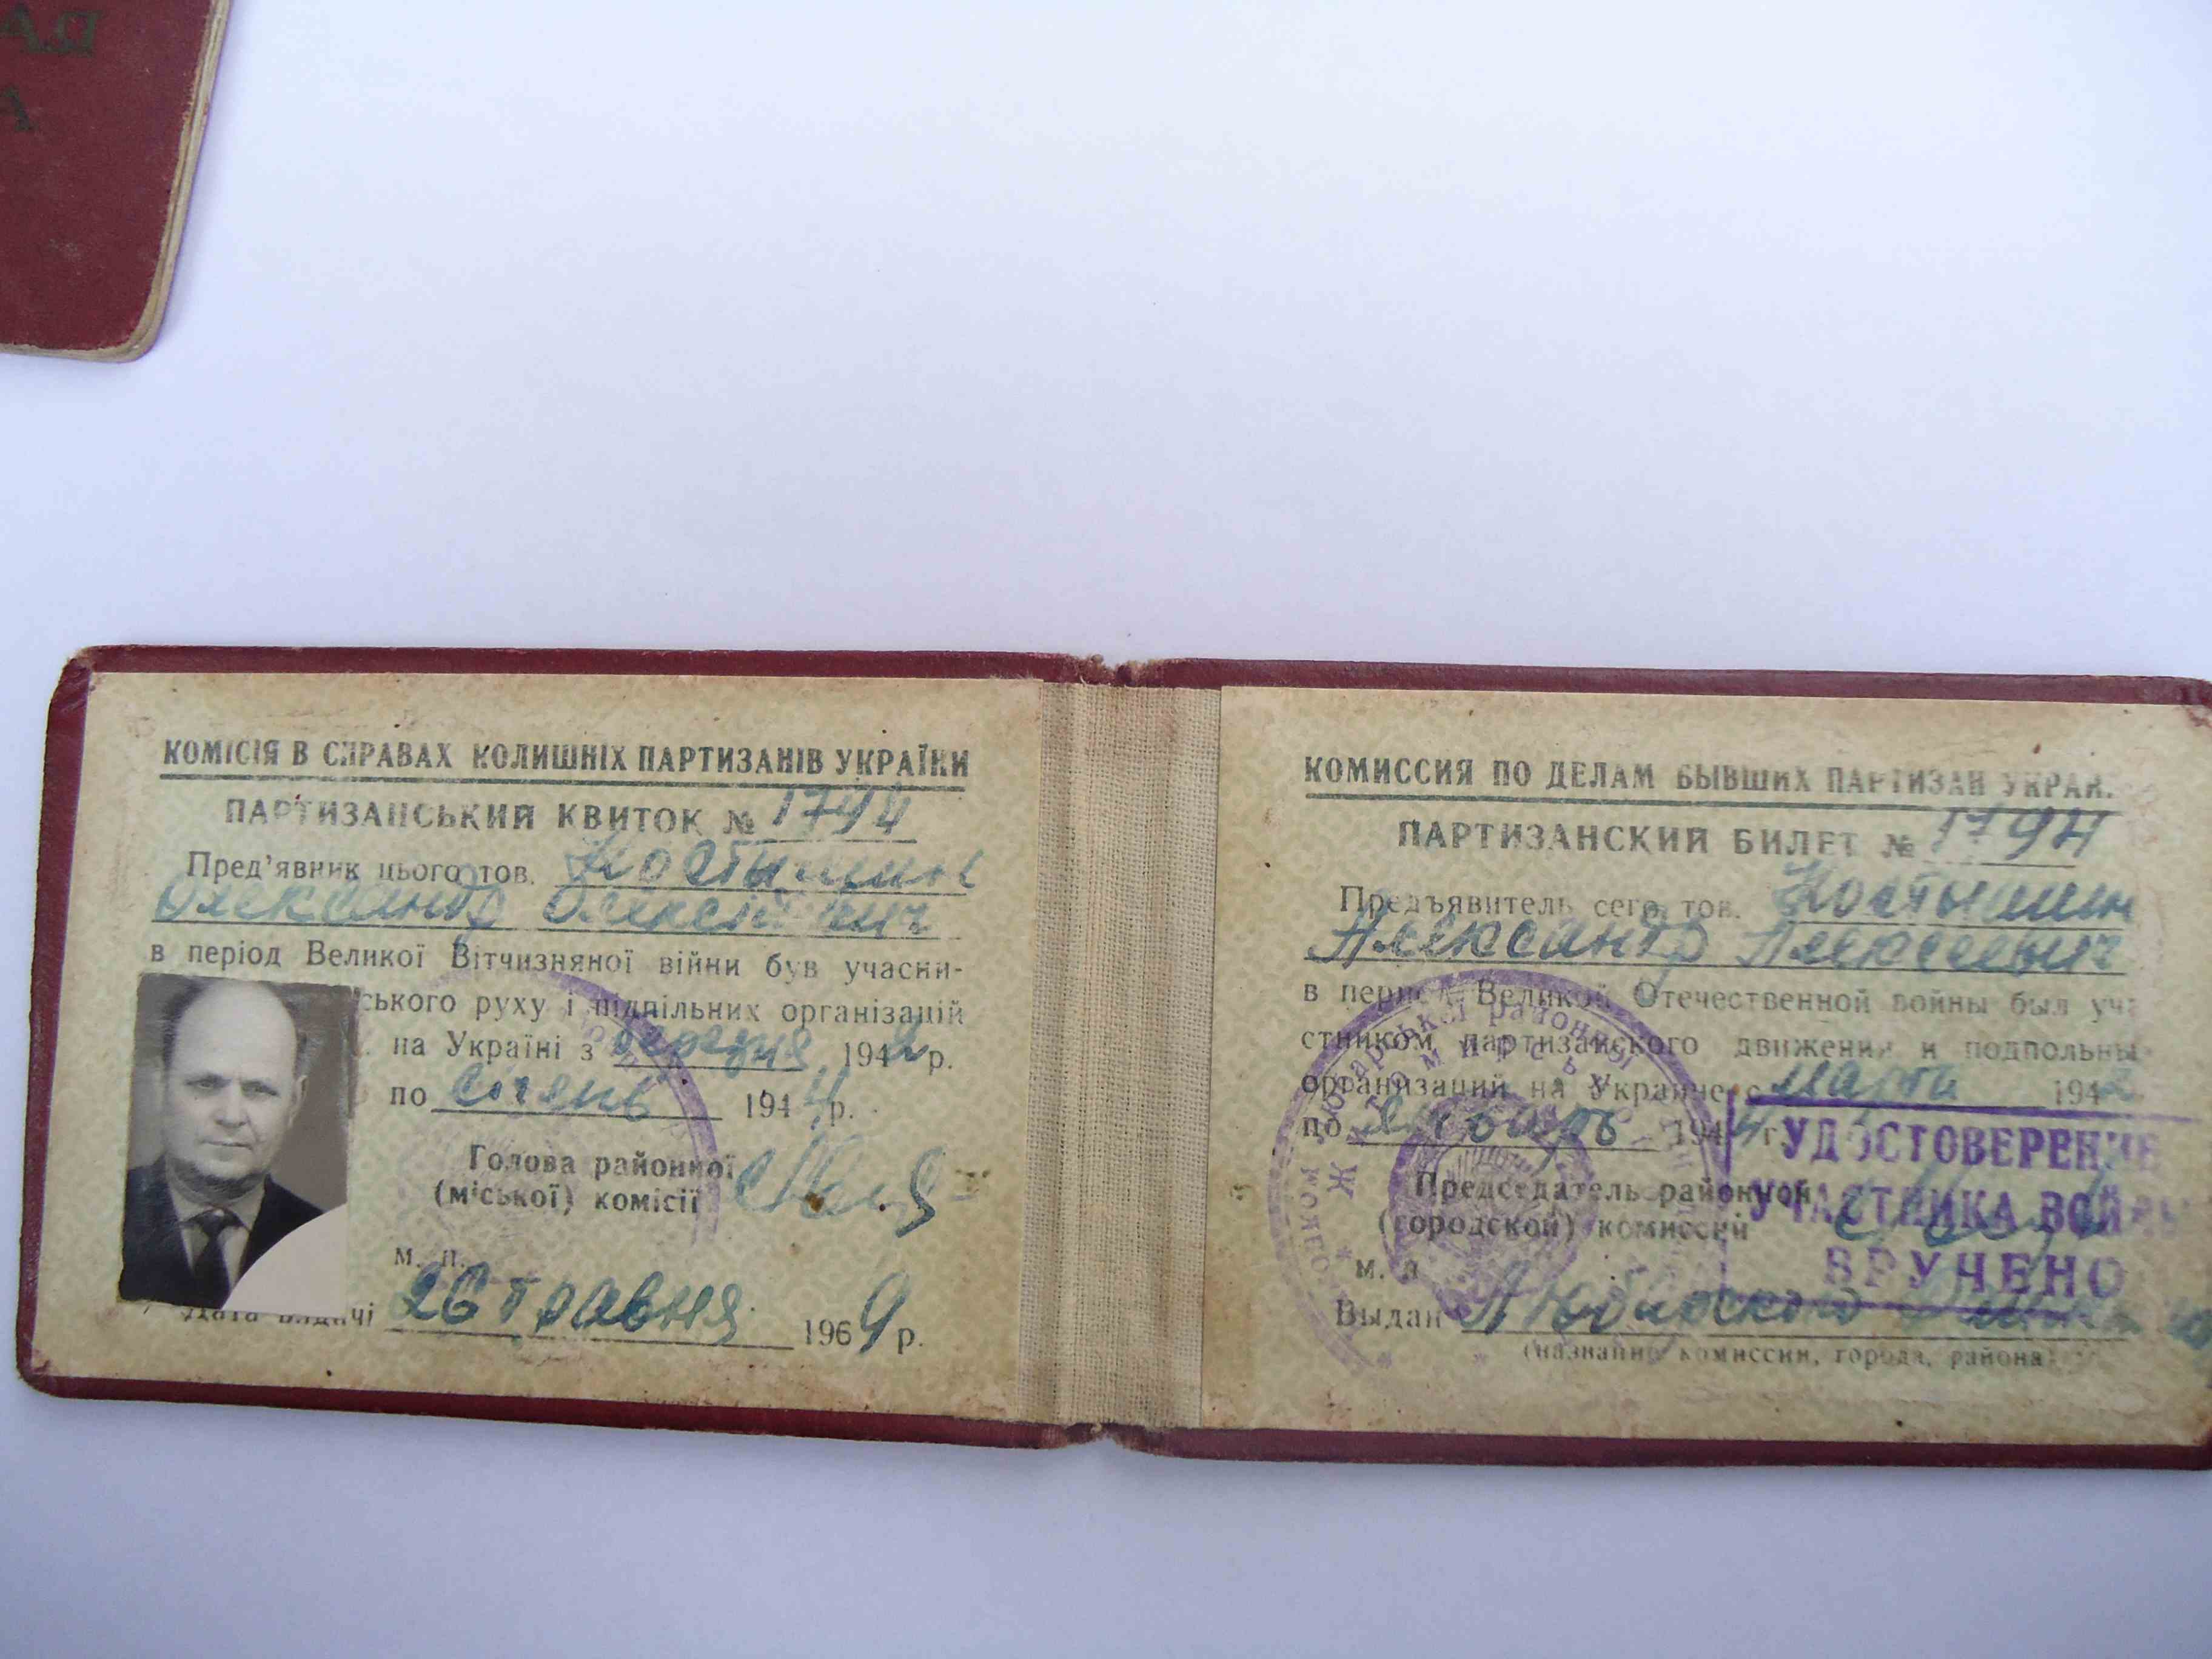 КОМІСІЯ В СПРАВАХ КОЛИШНІХ ПАРТИЗАНІВ УКРАЇНИ
ПАРТИЗАНСЬКИЙ КВИТОК № 1794
Пред'явник цього тов. Костишин
Олександр Олексійович
в період Великої Вітчизняної війни був учасни-
ського руху і підпільних організацій
на Україні з березня 1942 р.
по січень 1944 р.
Голова районної
(міської) комісії
м. п.
Дата видачі 26 травня 1969 р.
КОМИССИЯ ПО ДЕЛАМ БЫВШИХ ПАРТИЗАН УКРАИ
ПАРТИЗАНСКИЙ БИЛЕТ № 1794
Предъявитель сего тов. Костышин
Александр Алексеевич
в период Великой Отечественной войны был уча
стником партизанского движения и подпольны
организаций на Украине с марта 1942
по январь 1944 г
УДОСТОВЕРЕНИЕ
УЧАСТНИКА ВОЙНЫ
ВРУЧЕНО
Председатель районной
(городской) комиссий
м. п
Выдан Любарского
(назнание комиссии, города, района)